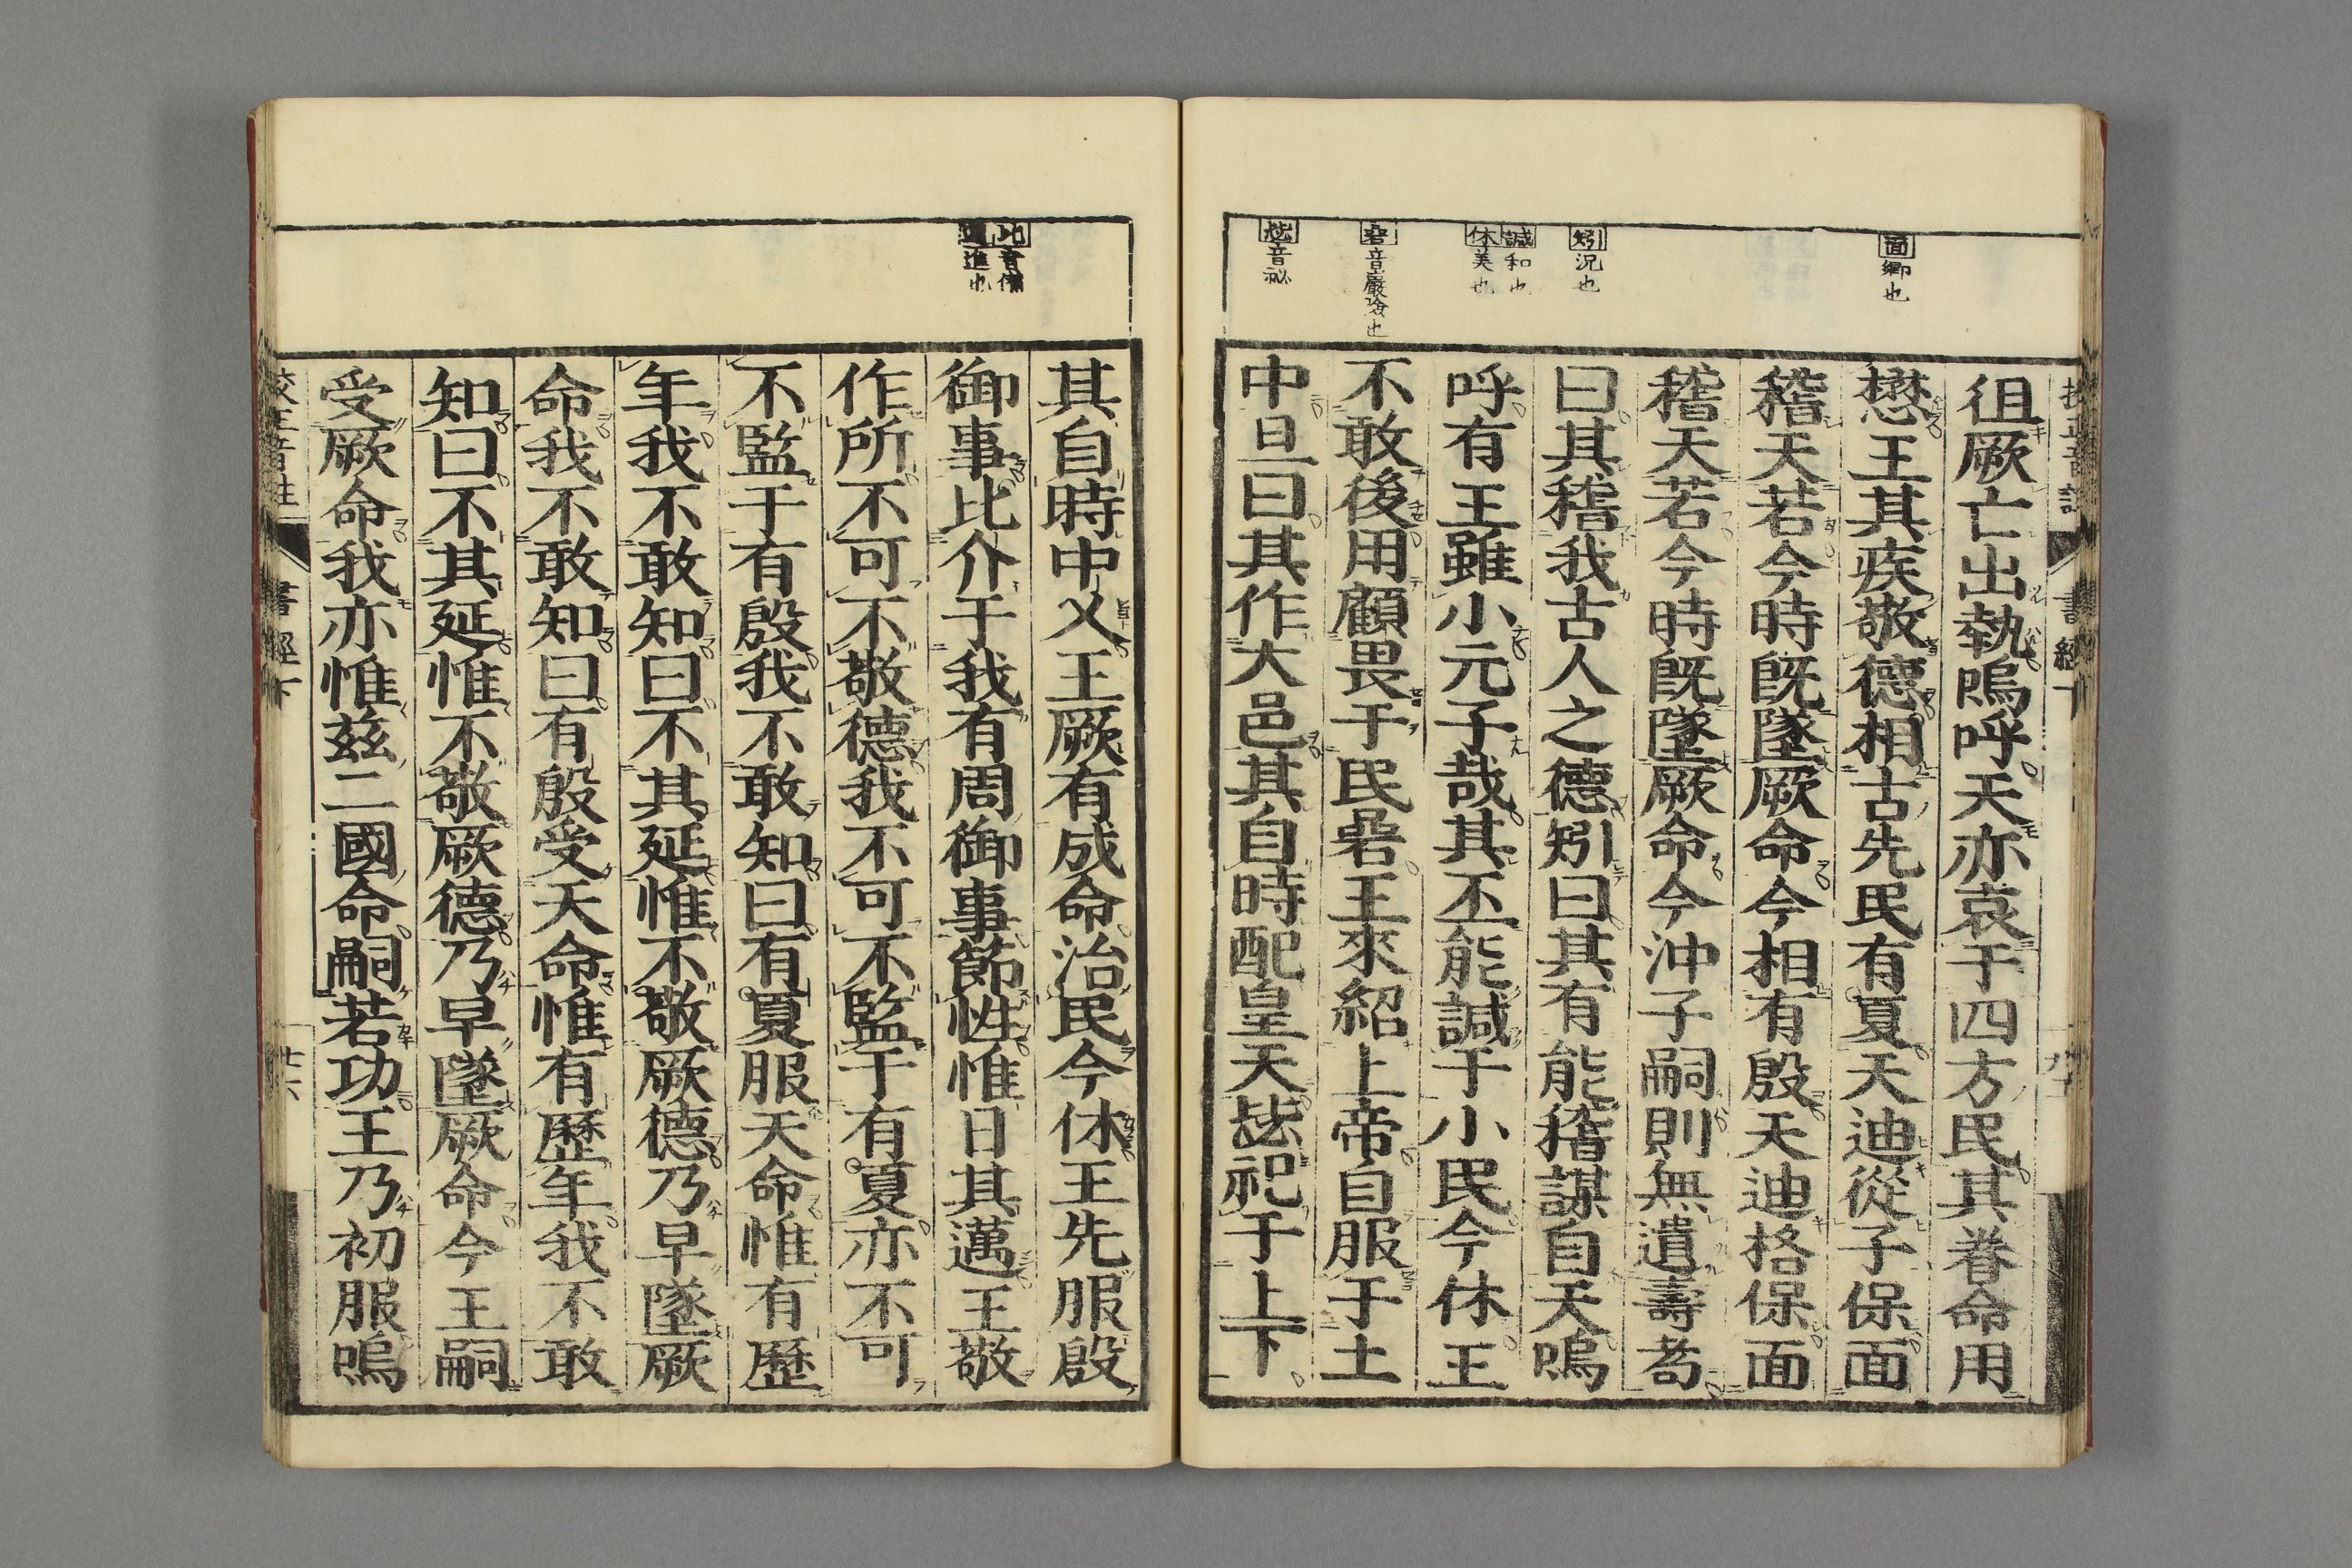 面鄉也
矧況也
諴和也
休美也
碞音巖險也
毖音祕
徂厥亡出執嗚呼天亦哀于四方民其眷命用
懋王其疾敬德相古先民有夏天迪從子保面
稽天若今時旣墜厥命今相有殷天迪格保面
稽天若今時旣墜厥命今沖子嗣則無遺壽耇
曰其稽我古人之德矧曰其有能稽謀自天嗚
呼有王雖小元子哉其丕能諴于小民今休王
不敢後用顧畏于民碞王來紹上帝自服于土
中旦曰其作大邑其自時配皇天毖祀于上下
比音備
邁進也
其自時中乂王厥有成命治民今休王先服殷
御事比介于我有周御事節性惟日其邁王敬
作所不可不敬德我不可不監于有夏亦不可
不監于有殷我不敢知曰有夏服天命惟有歷
年我不敢知曰不其延惟不敬厥德乃早墜厥
命我不敢知曰有殷受天命惟有歷年我不敢
知曰不其延惟不敬厥德乃早墜厥命今王嗣
受厥命我亦惟茲二國命嗣若功王乃初服嗚
校正音註
書經下